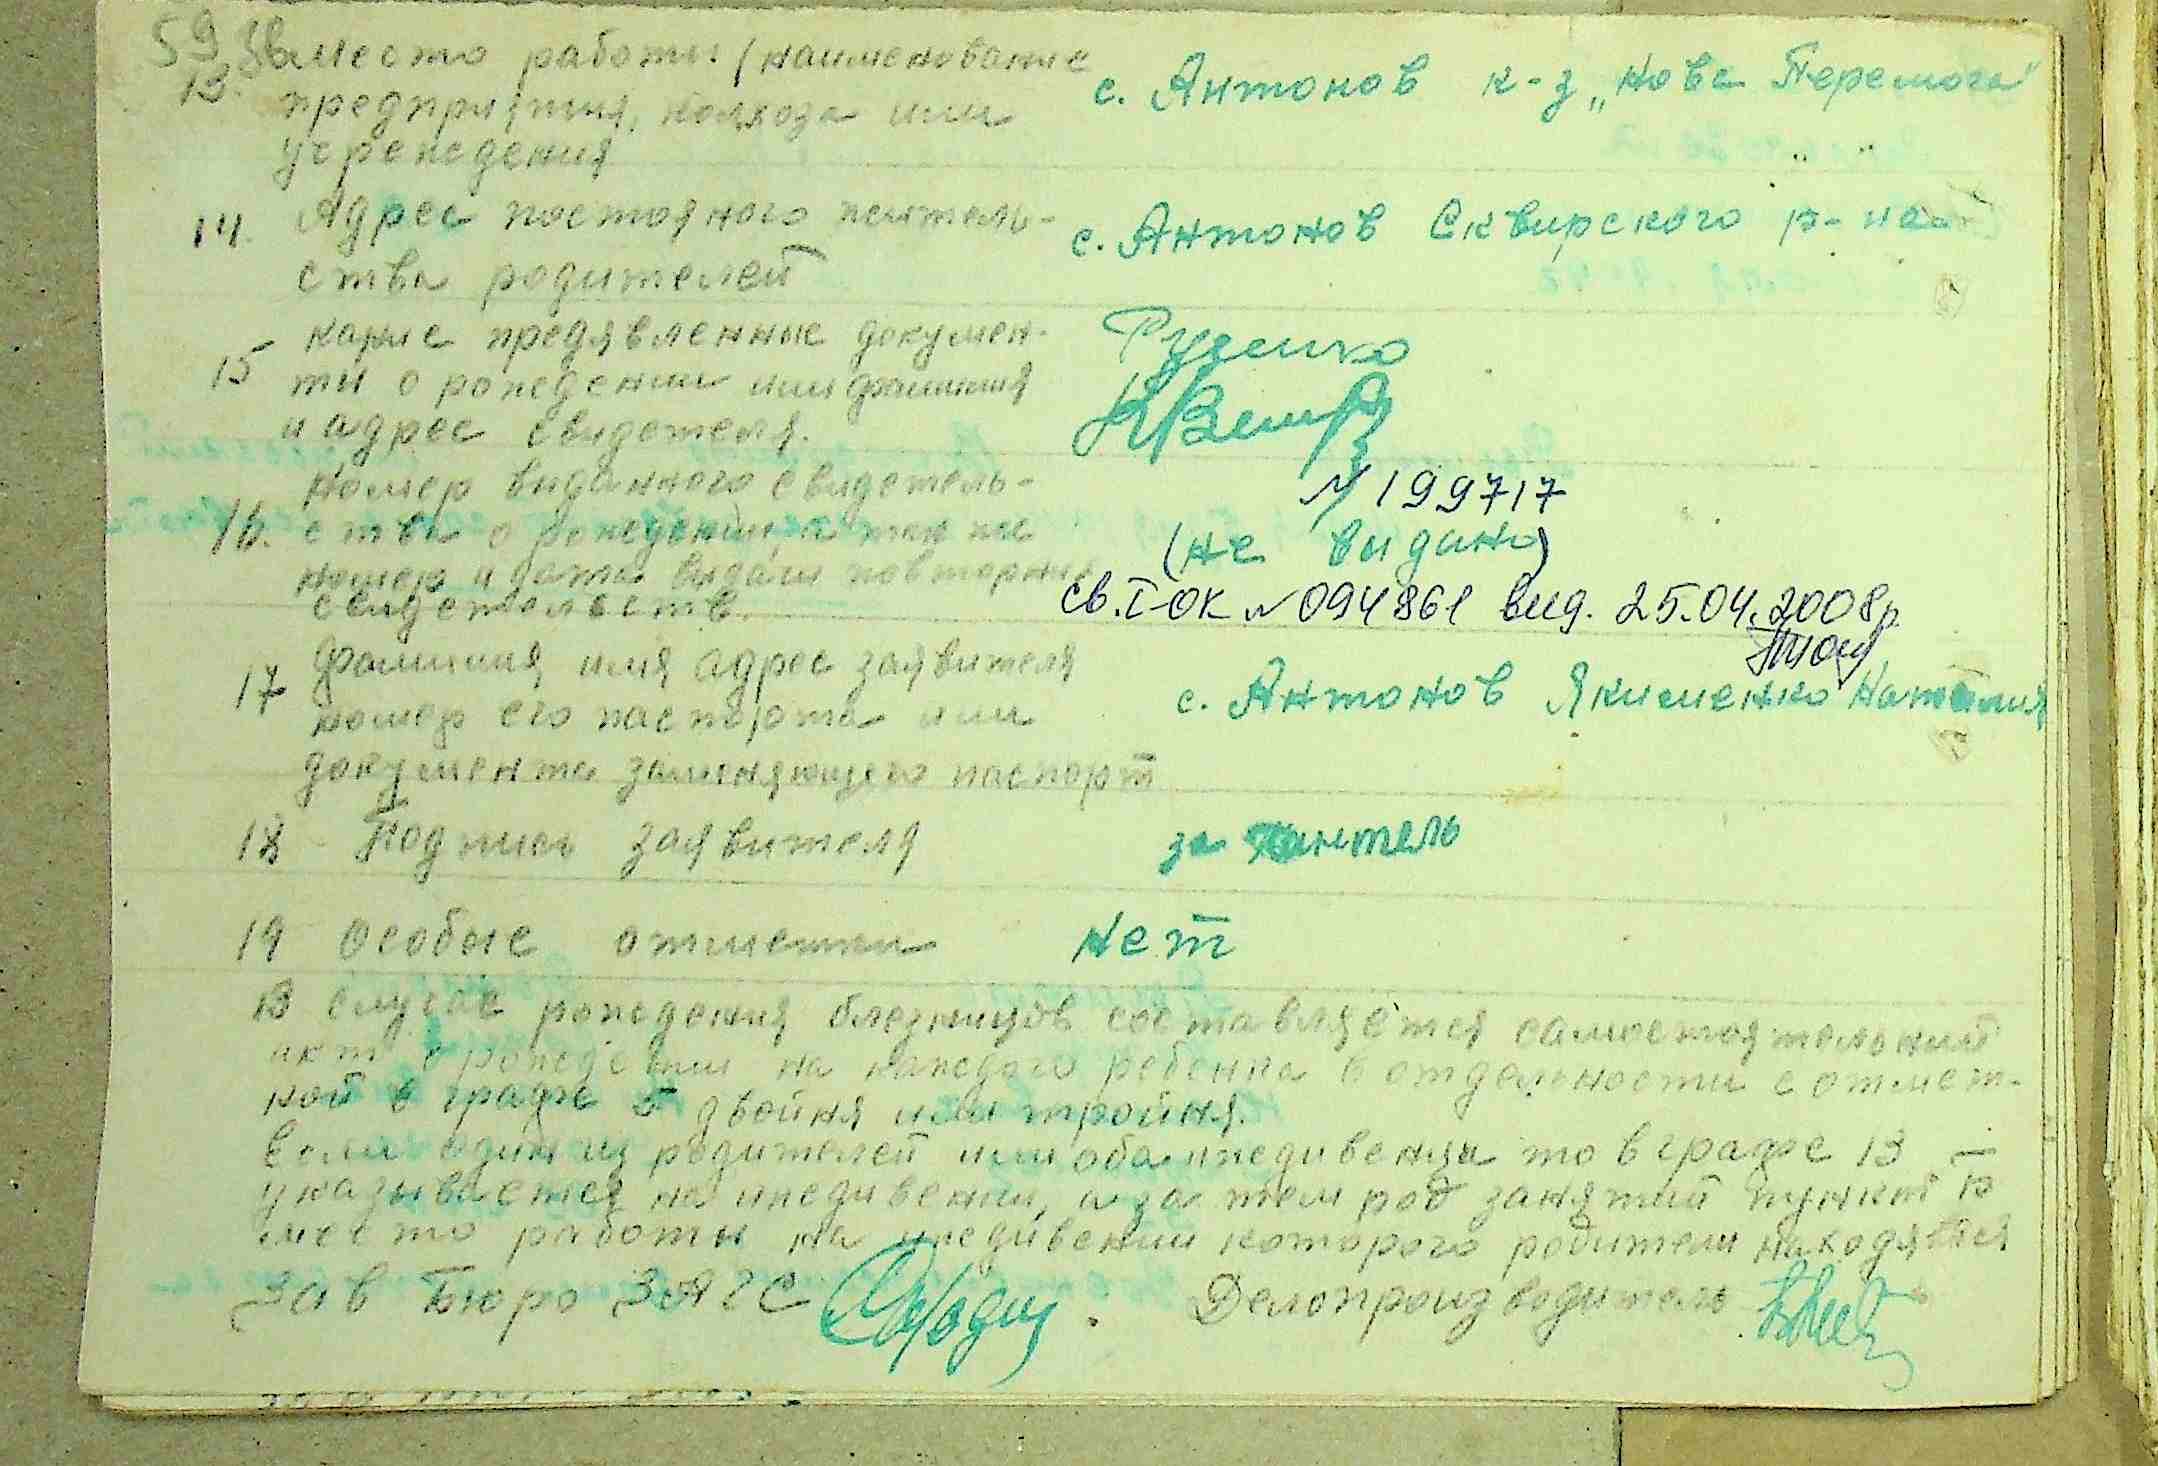 59 зв
13. место работы (наименование
предприятия, колхоза или
учреждения
с. Антонов к-з „Нова Перемога"
" "
14. Адрес постоянного житель-
ства родителей
с. Антонов Сквирского р-на
15 какие предявленные докумен-
ты о рождении или фамилия
и адрес свидетеля.
Руденко
16. Номер выданного свидетель-
ства о рождении, а так же
номер и дата выдачи повторных
свидетельств.
№ 199717
(не видано)
св. I-ОК № 094861 вид. 25.04.2008р.
17 Фамилия, имя адрес заявителя
номер его паспорта или
документа заменяющего паспорт
с. Антонов Якименко Наталия
18 Подпись заявителя
за
19 Особые отметки
Нет
В случае рождения близнецов составляется самостоятельный
акт о рождении на каждого ребенка в отдельности с отмет-
кой в графе 5 двойня или тройня.
Если один из родителей или оба иждивенца то в графе 13
указывается на иждивении, а за тем род занятий пункт Б
место работы на иждивении которого родители находятся
Зав Бюро ЗАГС
Делопроизводитель